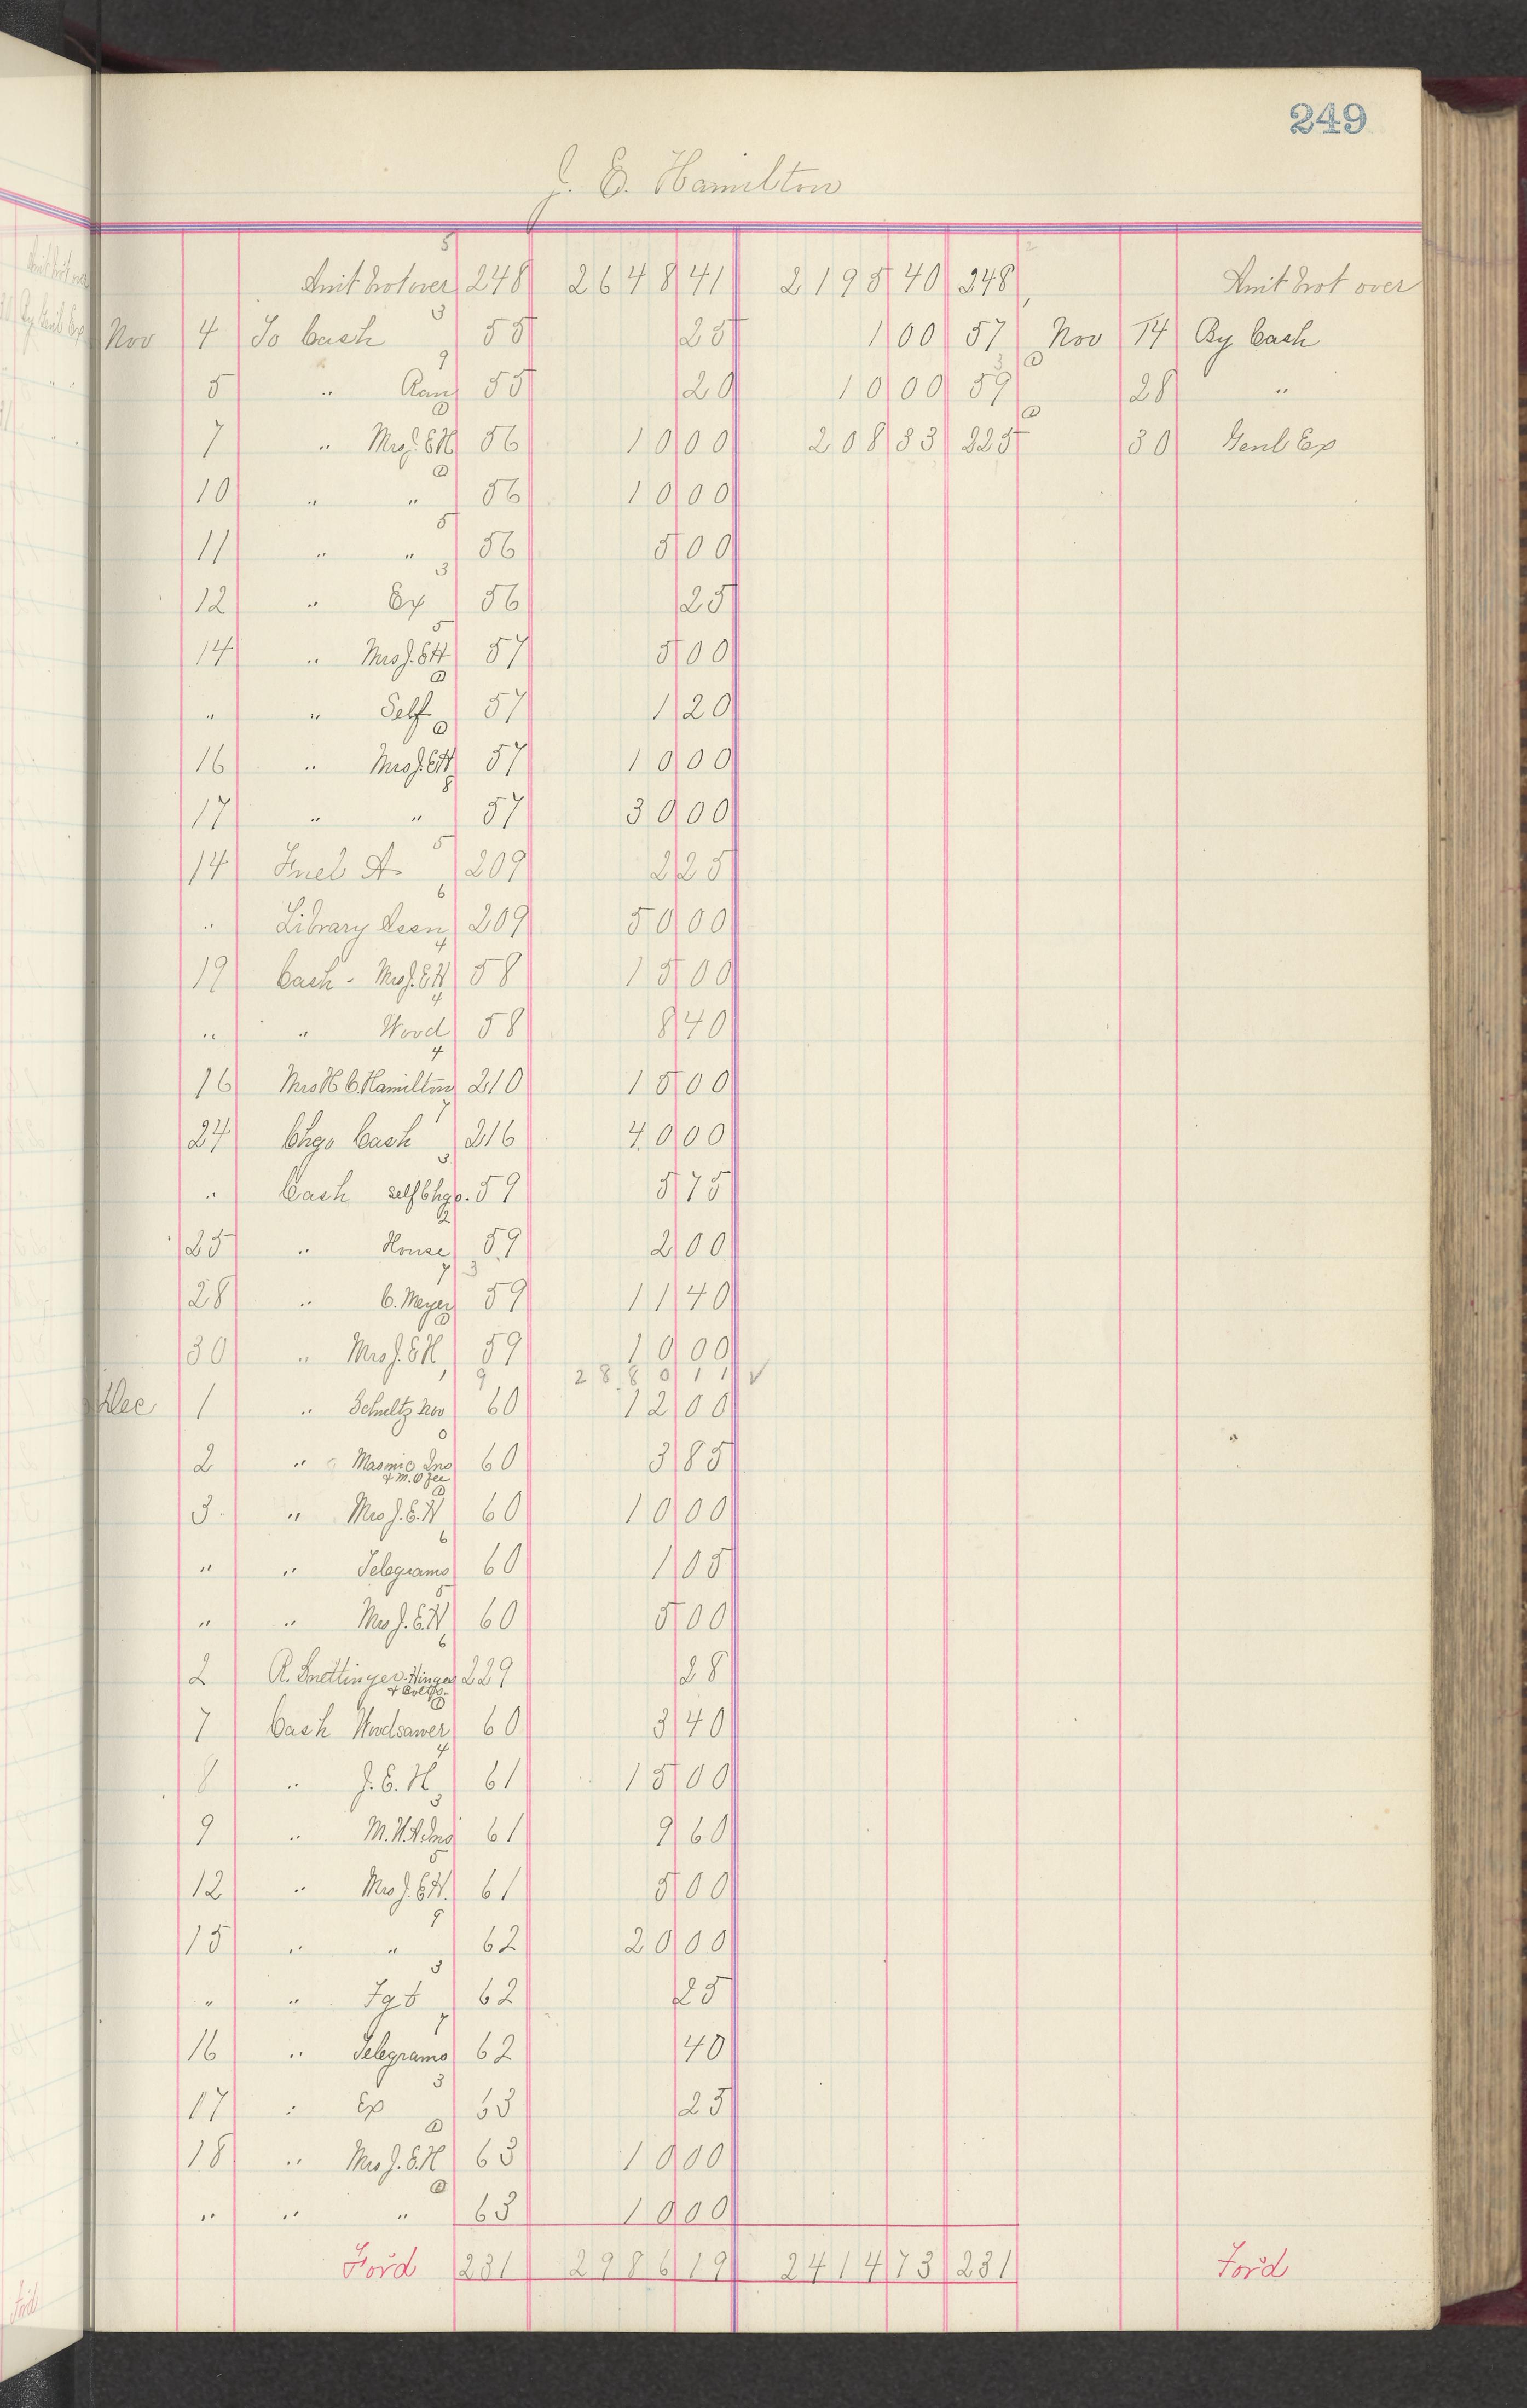 249
J. E. Hamilton
Amt brot over 248 2648 41 2195 40 248 Amt brot over
Nov 4 To Cash 55 25 1 00 57 Nov 14 By Cash
5 " 55 20 10 00 59 28 "
7 " Mrs J. E H 56 10 00 208 33 225 30 Genl Ex
10 " " 56 10 00
11 " " 56 5 00
12 " Ex 56 25
14 " Mrs J. E H 57 5 00
" " Self 57 1 20
16 " Mrs J. E H 57 10 00
17 " " 57 30 00
14 Fuel A 209 2 25
" Library Assn 209 50 00
19 Cash - Mrs J. E H 58 15 00
" " Wood 58 8 40
16 Mrs H C. Hamilton 210 15 00
24 Chgo Cash 216 40 00
" Cash self Chgo. 59 5 75
25 " House 59 2 00
28 " C. Meyer 59 11 40
30 " Mrs J. E H 59 10 00
2880 11 ✓
Dec 1 " Schultz Nov 60 12 00
2 " Masonic Ins 60 3 85
& M. O fee
3 " Mrs J. E. H 60 10 00
" " Telegrams 60 1 05
" " Mrs J. E. H 60 5 00
2 R. Hinges 229 28
& Bolts
7 Cash Woodsawer 60 3 40
8 " J. E. H 61 15 00
9 " M. W. A Ins 61 9 60
12 " Mrs J. E H. 61 5 00
15 " " 62 20 00
" " Fgt 62 25
16 " Telegrams 62 40
17 " Ex 63 25
18 " Mrs J. E. H 63 10 00
" " " 63 10 00
Ford 231 2986 19 2414 73 231 Ford